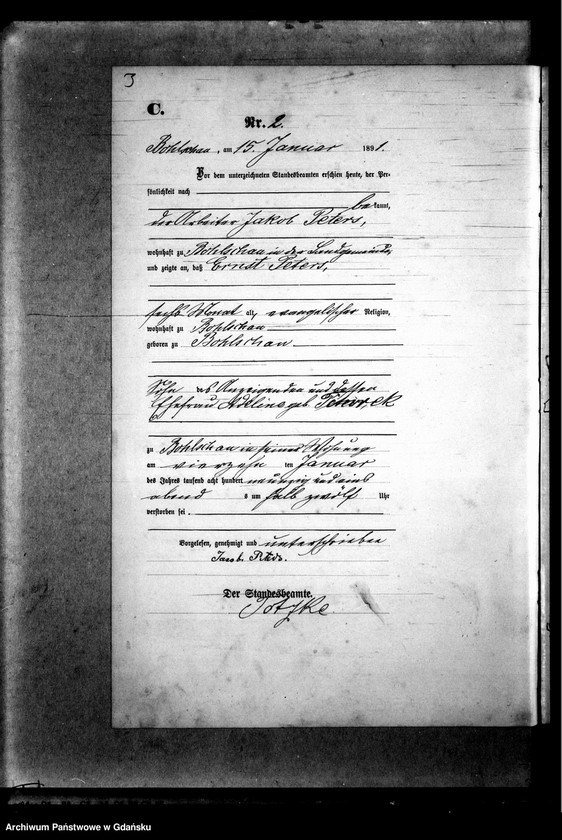 3
C.
Nr. 2.
Bohlschau, am 15. Januar 1891.
Vor dem unterzeichneten Standesbeamten erschien heute, der Per-
sönlichkeit nach
bekannt,
der Arbeiter Jakob Peters,
wohnhaft zu Bohlschau in der Landgemeinde,
und zeigte an, daß Ernst Peters,
sechs Monat alt, evangelischer Religion,
wohnhaft zu Bohlschau
geboren zu Bohlschau
Sohn des Anzeigenden und dessen
Ehefrau Adeline geb.
zu Bohlschau in seiner Wohnung
am vierzehn ten Januar
des Jahres tausend acht hundert neunzig und eins
abends um halb zwölf Uhr
verstorben sei.
Vorgelesen, genehmigt und unterschrieben
Jacob
Der Standesbeamte.
Archiwum Państwowe w Gdańsku